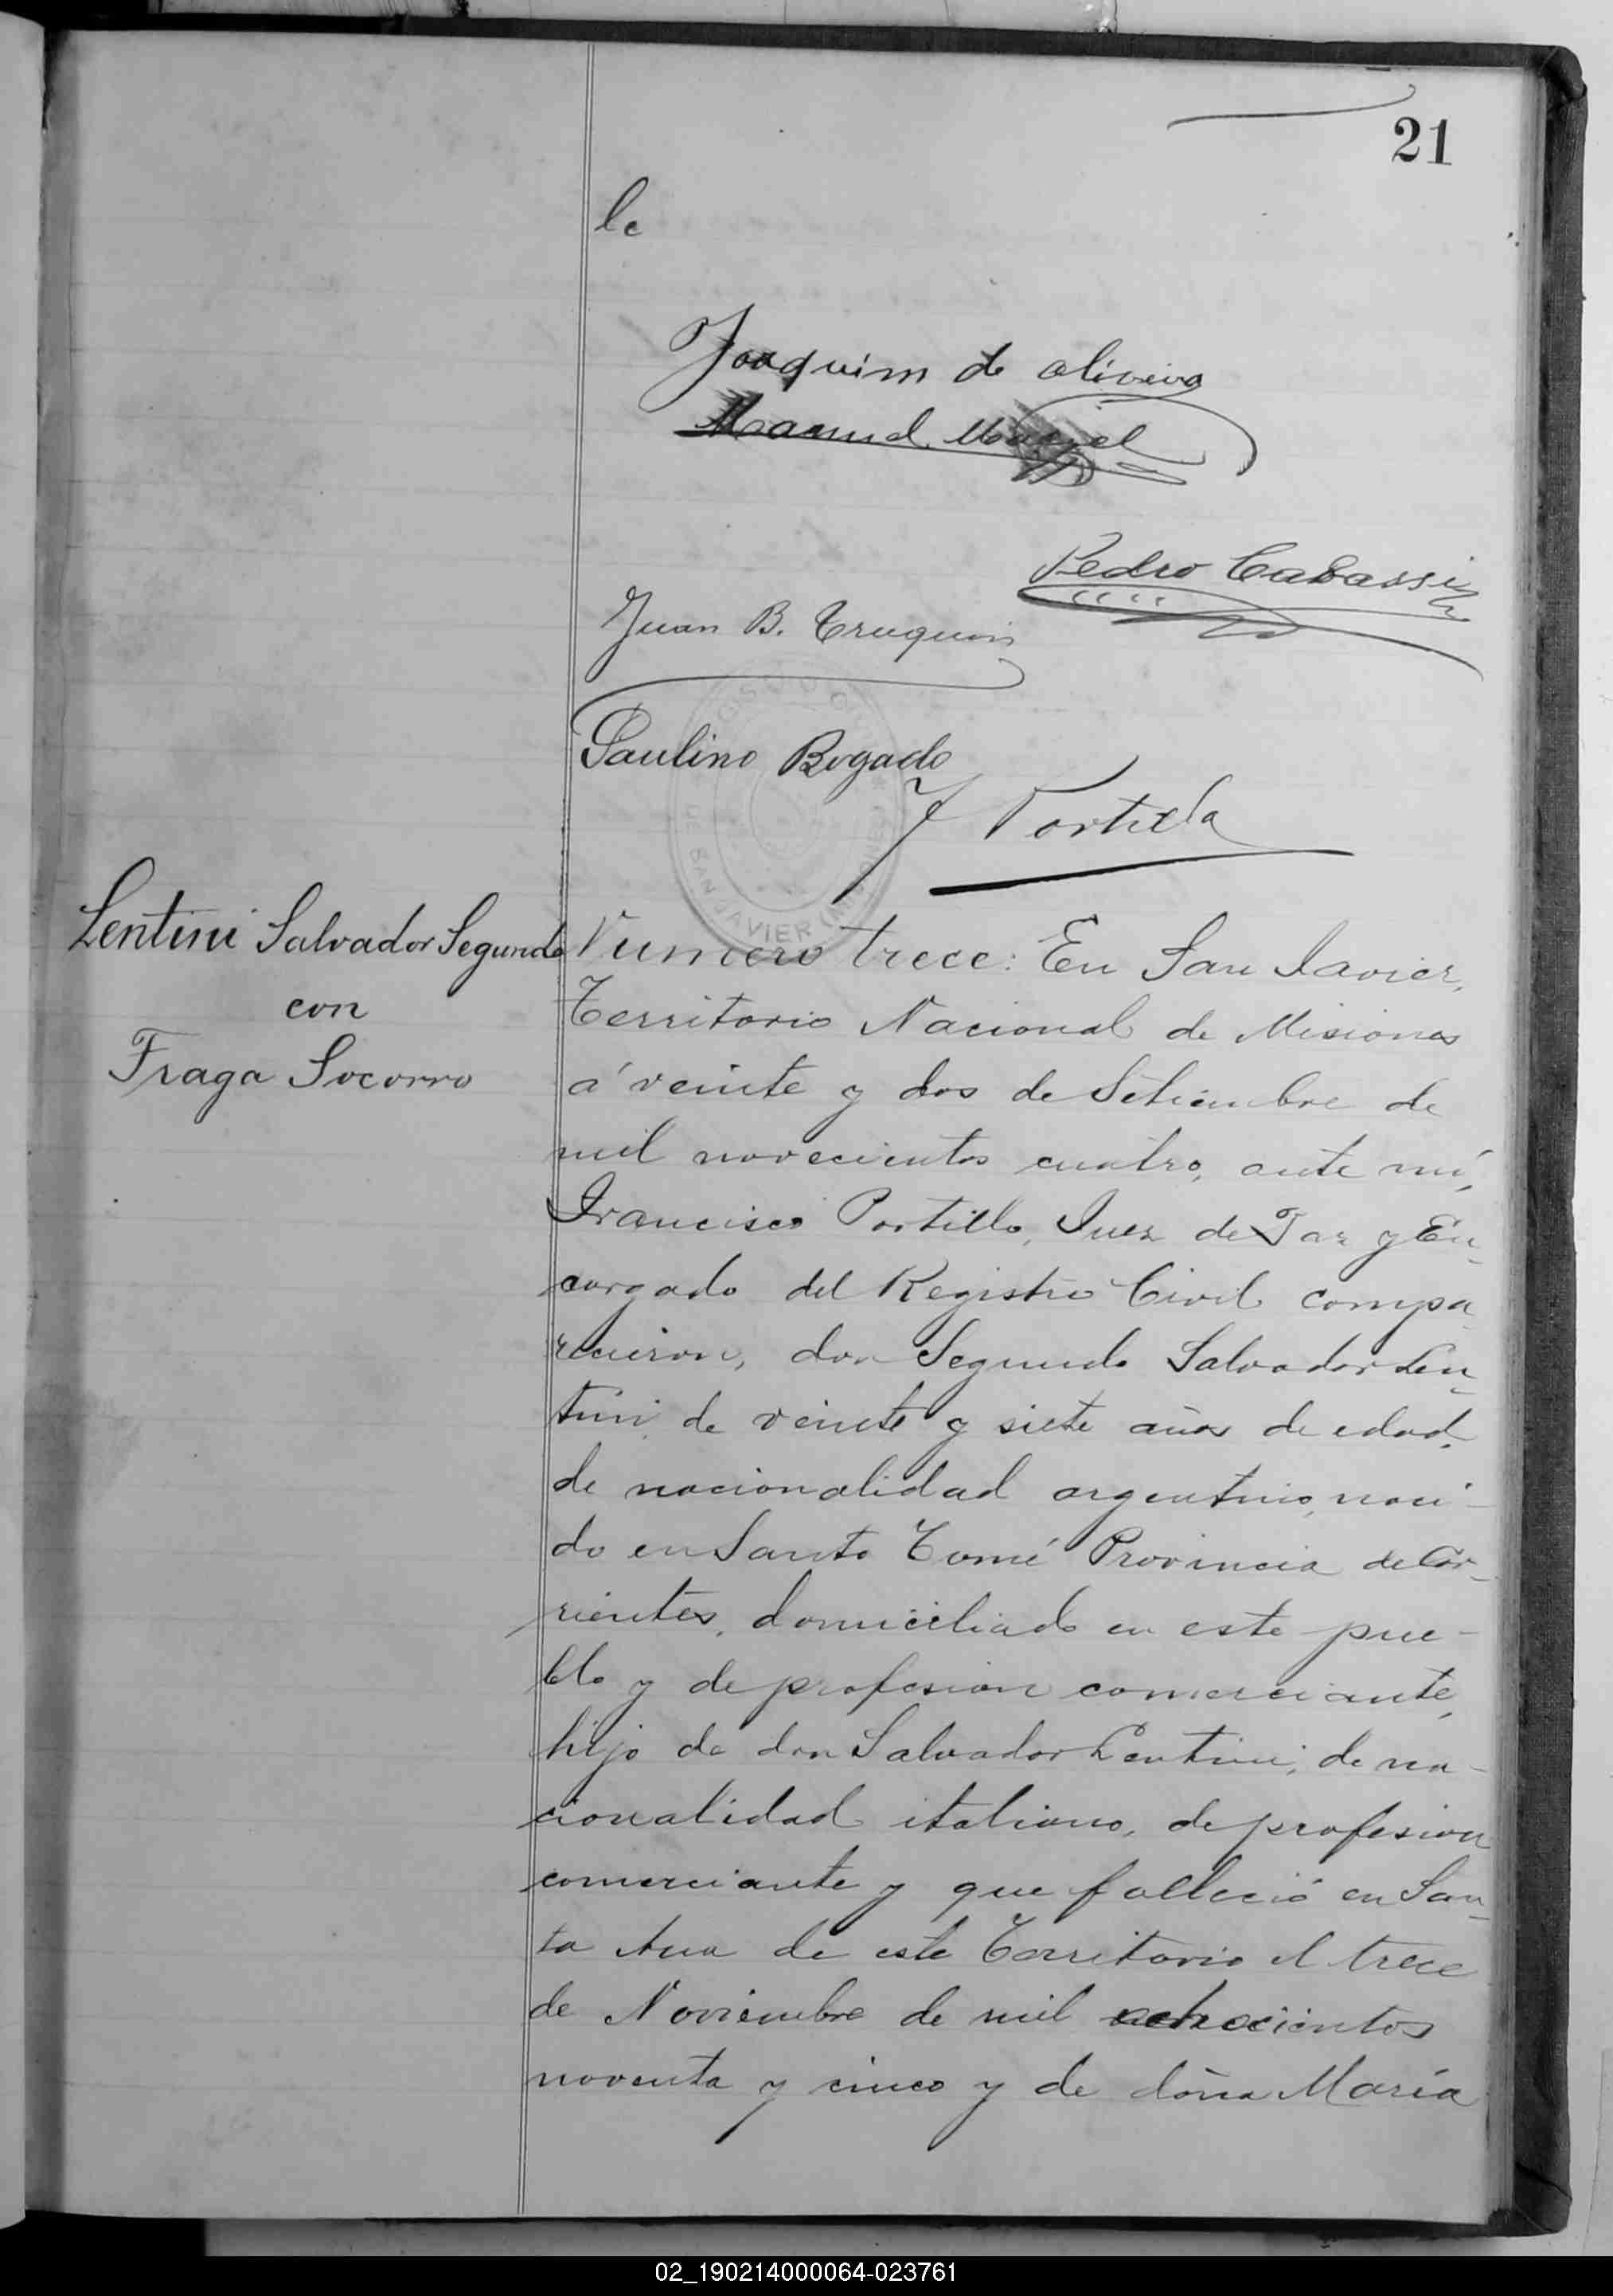 21
le
Joaquim de oliveira
Manuel
Pedro Cabassi
Juan B.
Paulino Bogado
F Portillo
SAN JAVIER
Lentini Salvador Segundo
con
Fraga Socorro
Numero trece: En San Javier,
Territorio Nacional de Misiones
á veinte y dos de Setiembre de
mil novecientos cuatro, ante mí,
Francisco Portillo, Juez de Paz y En-
cargado del Registro Civil compa-
recieron, don Segundo Salvador Len-
tini de veinte y siete años de edad,
de nacionalidad argentino, naci-
do en Santo Tomé Provincia de Cor-
rientes, domiciliado en este pue-
blo y de profesion comerciante,
hijo de don Salvador Lentini, de na-
cionalidad italiano, de profesion
comerciante y que falleció en San-
ta Ana de este Territorio el trece
de Noviembre de mil ochocientos
noventa y cinco y de doña María
02_190214000064-023761